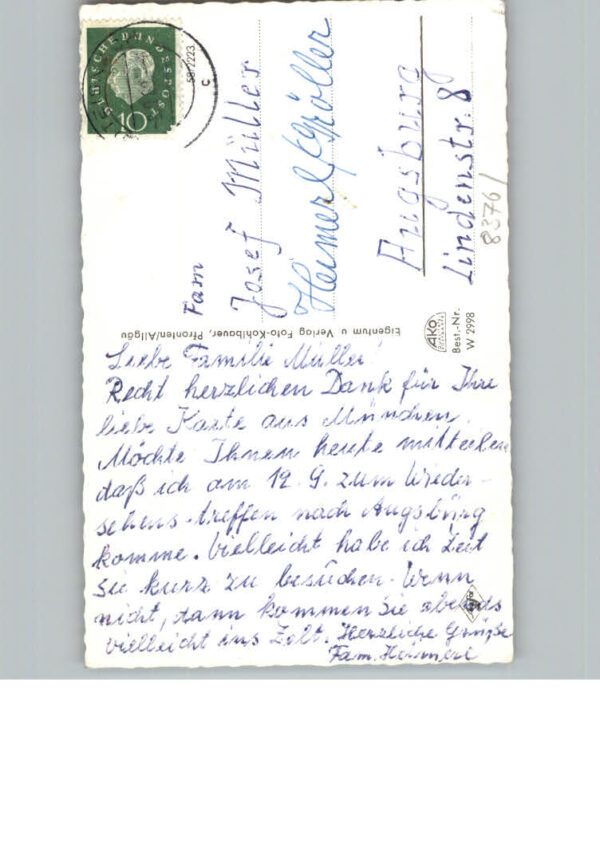 DEUTSCHE BUNDESPOST
10
58 2223
c
Fam
Josef Müller
Heimerl
Augsburg
Lindenstr. 8
8376/
Eigentum u Verlag Foto-Kohlbauer, Pfronten/Allgäu
AKO
Best.-Nr.
W 2998
Liebe Familie Müller!
Recht herzlichen Dank für Ihre
liebe Karte aus München.
Möchte Ihnen heute mitteilen
daß ich am 12. 9. zum Wieder-
sehens-treffen nach Augsburg
komme. Vielleicht habe ich Zeit
Sie kurz zu besuchen. Wenn
nicht, dann kommen Sie abends
vielleicht ins Zelt. Herzliche Grüße
Fam. Heimerl